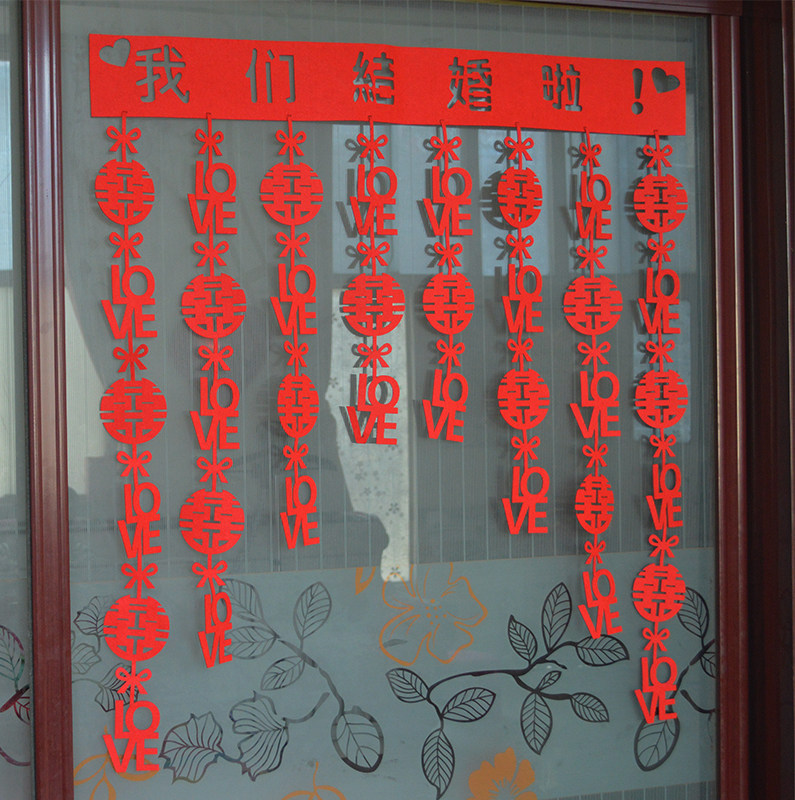 我们結婚啦!
囍
LOVE
囍
LOVE
囍
LOVE
LOVE
囍
LOVE
囍
LOVE
囍
LOVE
囍
LOVE
LOVE
囍
LOVE
LOVE
囍
LOVE
囍
LOVE
囍
LOVE
LOVE
囍
LOVE
囍
LOVE
囍
LOVE
囍
LOVE
囍
LOVE